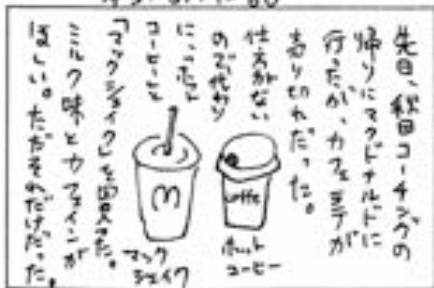 先日、秋田コーチングの
帰りにマクドナルドに
行ったが、カフェラテが
売り切れだった。
仕方がない
ので代わり
にホット
コーヒーと
「マックシェイク」を買った。
ミルク味とカフェインが
ほしい。ただそれだけだった。
coffe
M
ホット
コーヒー
マック
シェイク